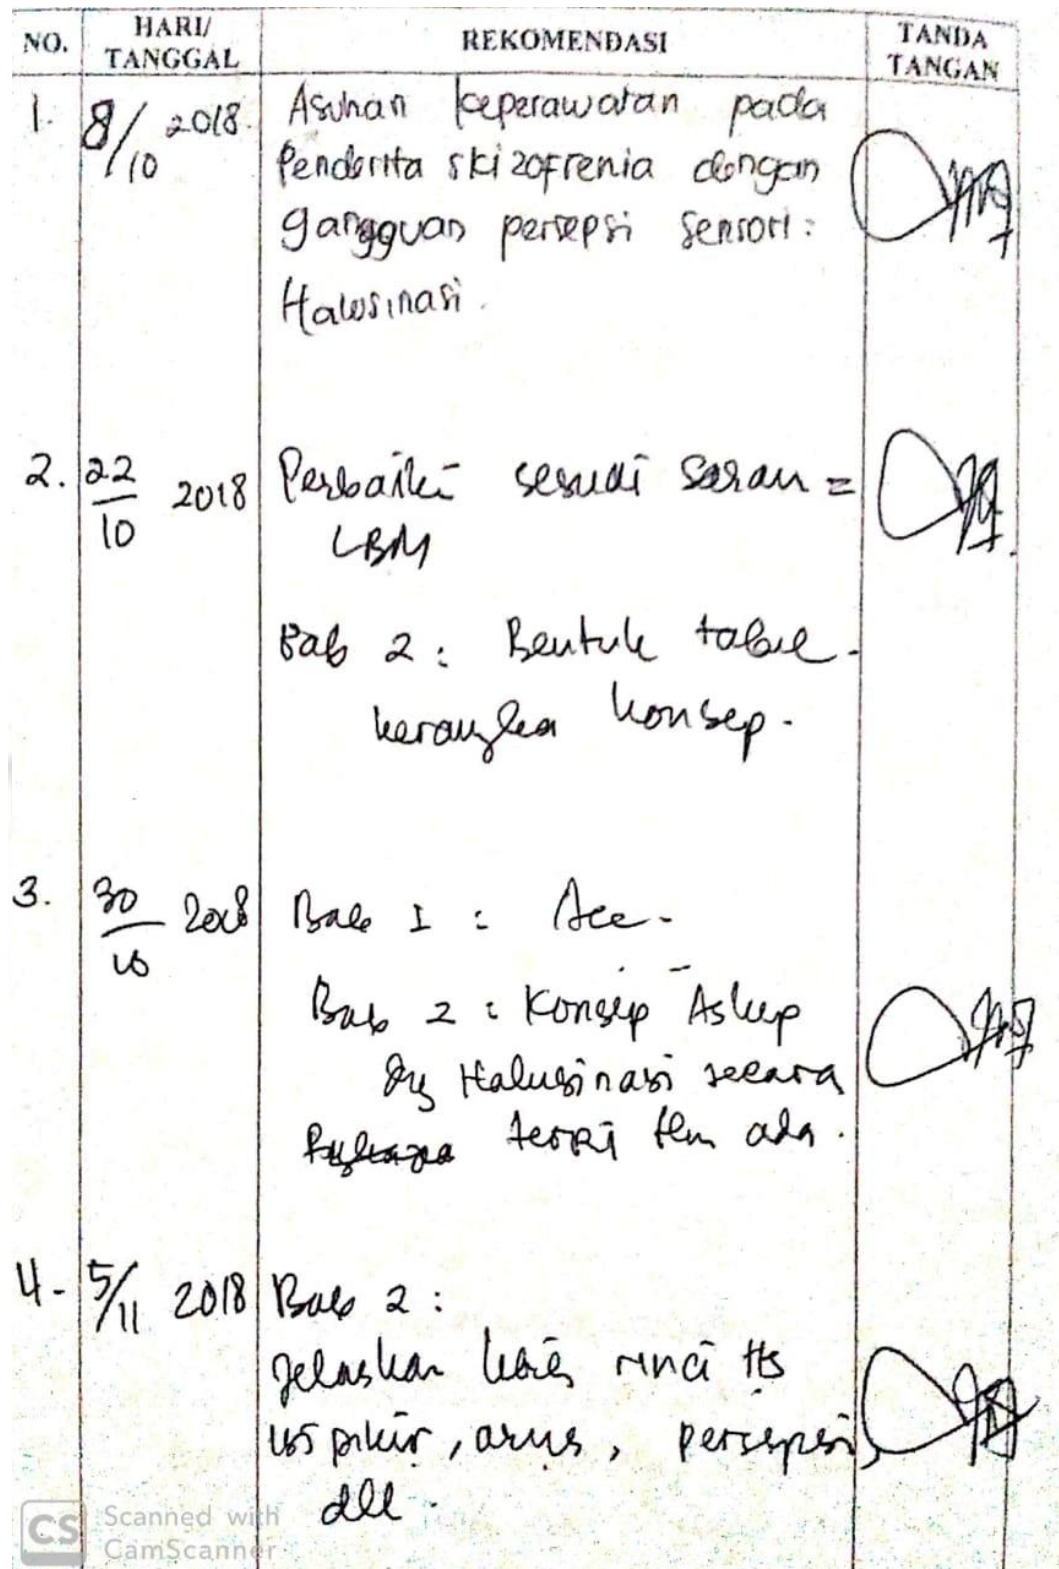 NO. HARI/ TANGGAL REKOMENDASI TANDA TANGAN
1. 8/10 2018. Asuhan keperawatan pada
Penderita skizofrenia dengan
gangguan persepsi sensori :
Halusinasi.
2. 22/10 2018 Perbaiki sesuai saran =
LBM
Bab 2 : Bentuk tabel.
kerangka konsep.
3. 30/10 2018 Bab I : Acc.
Bab 2 : Konsep Askep
dg Halusinasi secara
teori blm ada.
4. 5/11 2018 Bab 2 :
Jelaskan lebih rinci ttg
isi pikir, arus, persepsi,
dll.
CS Scanned with
CamScanner